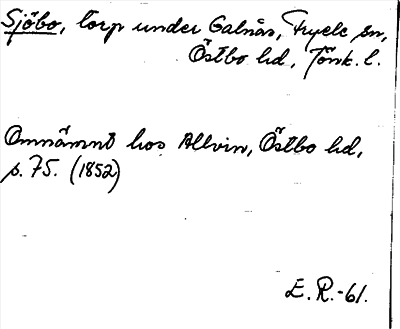 Sjöbo, torp under Galnås, Fryele sn,
Östbo hd, Jönk. l.
Omnämnt hos Allvin, Östbo hd,
s. 75. (1852)
E. R.-61.